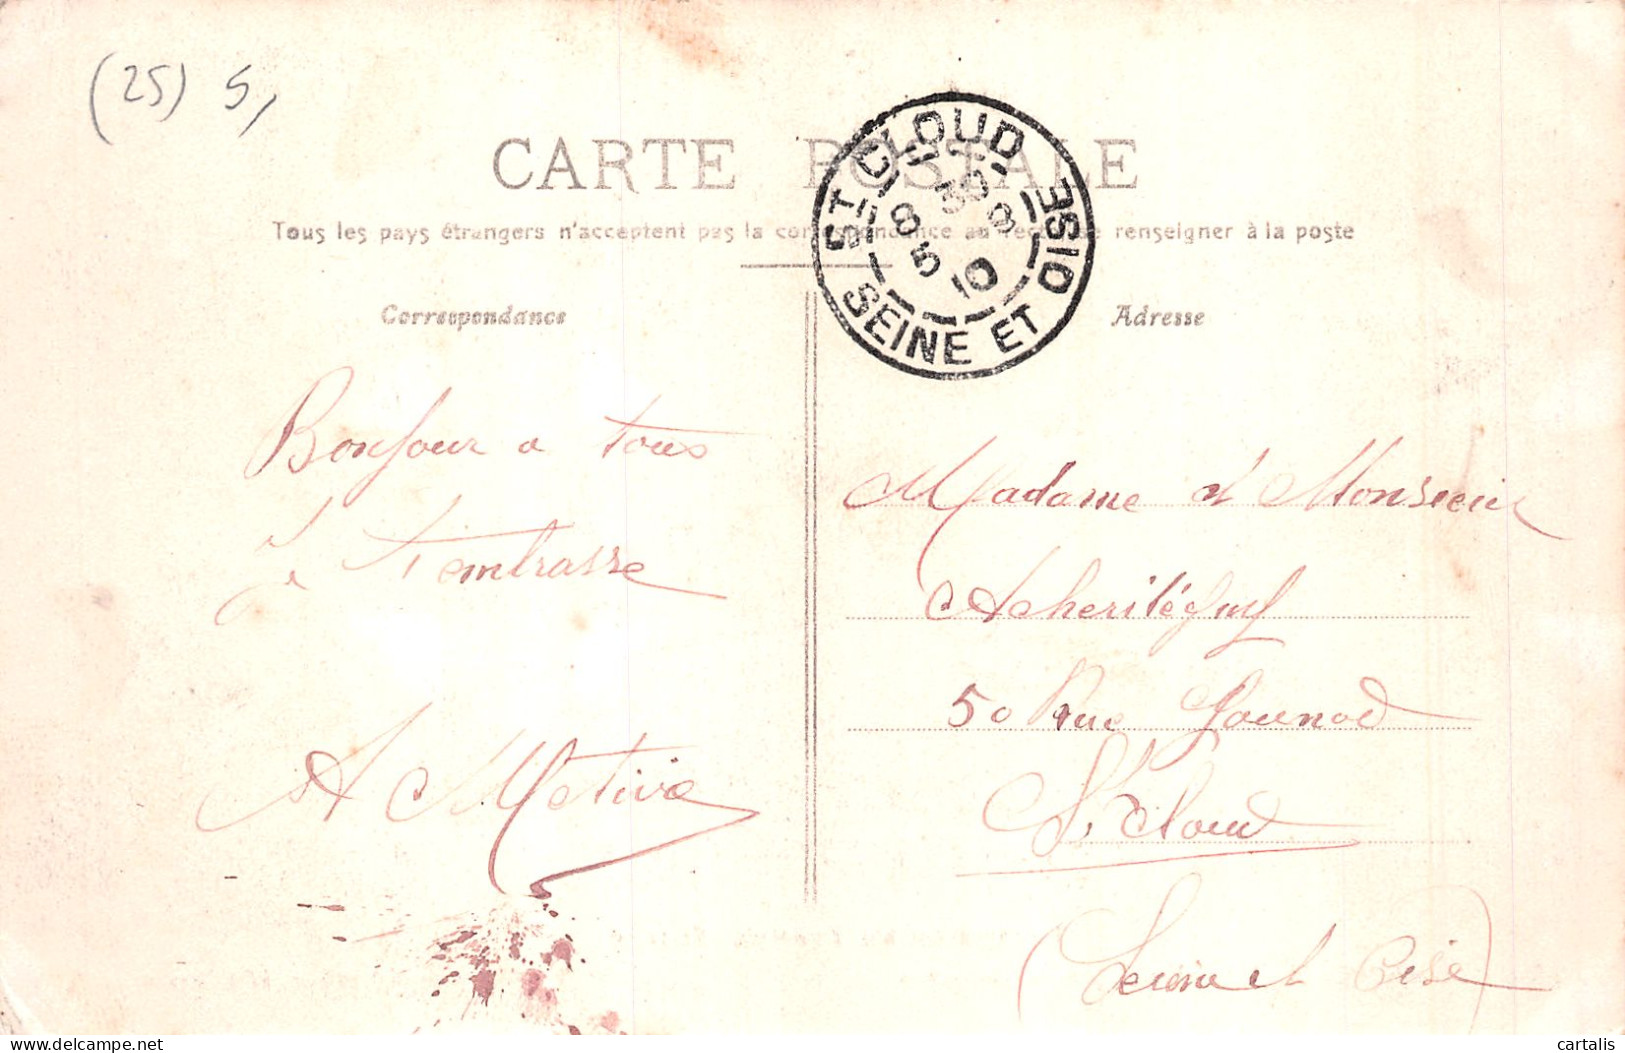 (25) 5,
CARTE POSTALE
Tous les pays étrangers n'acceptent pas la correspondance au recto se renseigner à la poste
ST CLOUD
8 30
5 10
SEINE ET OISE
Correspondance
Adresse
Bonjour a tous
t'embrasse
A Metivé
Madame et Monsieur
50 Rue Gounod
St Cloud
(Seine et Oise)
delcampe.net
cartalis